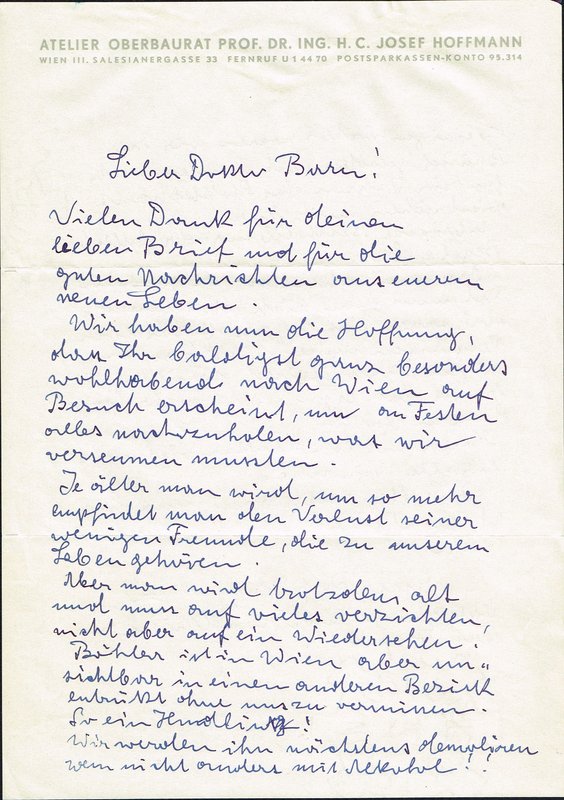 ATELIER OBERBAURAT PROF. DR. ING. H. C. JOSEF HOFFMANN
WIEN III. SALESIANERGASSE 33 FERNRUF U 1 44 70 POSTSPARKASSEN-KONTO 95.314
Lieber Doktor Born!
Vielen Dank für deinen
lieben Brief und für die
guten Nachrichten aus eurem
neuen Leben.
Wir haben nun die Hoffnung,
dass Ihr baldigst ganz besonders
wohlhabend nach Wien auf
Besuch erscheint, um an Festen
alles nachzuholen, was wir
verseumen mussten.
Je älter man wird, um so mehr
empfindet man den Verlust seiner
wenigen Freunde, die zu unserem
Leben gehören.
Aber man wird trotzdem alt
und muss auf vieles verzichten,
nicht aber auf ein Wiedersehen.
Böhler ist in Wien aber un-
sichtbar in einen anderen Bezirk
entrükt ohne uns zu vermissen.
So ein
Wir werden ihn nächstens demolieren
wenn nicht anders mit Alkohol!!